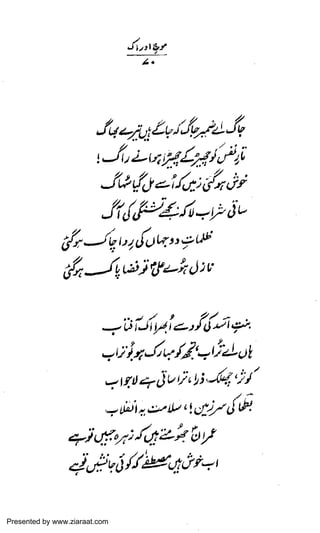 موجِ ادراک
۷۰
جاگ اے ضمیر جاگ کہ جاگے ہیں تیرے بھاگ
تارِ نفس کو چھیڑ کے چھیڑا ہوا نے راگ!
خوش ہو گئی زمیں کہ اُسے مل گیا سُہاگ
ساقی شراب لا کہ بجھے تشنگی کی آگ
ظلماتِ دو جہاں کی رِدا چاک ہو گئی
نازل ہوئے علیؑ تو فضا پاک ہو گئی
بنتِ اَسَد کی گود سے اُبھرا اک آفتاب
ہاں اے تُراب تجھ کو مبارک ہو بُوتراب
کوثر، چھلک ذرا، ترا ساقی ہے لاجواب
بطحا کی سرزمین! سلامت یہ انقلاب
عمرانؑ جھومتے ہیں کہ زہرہ جبیں تو ہے
اب خوش ہیں مصطفےٰؐ کہ کوئی جانشیں تو ہے
Presented by www.ziaraat.com